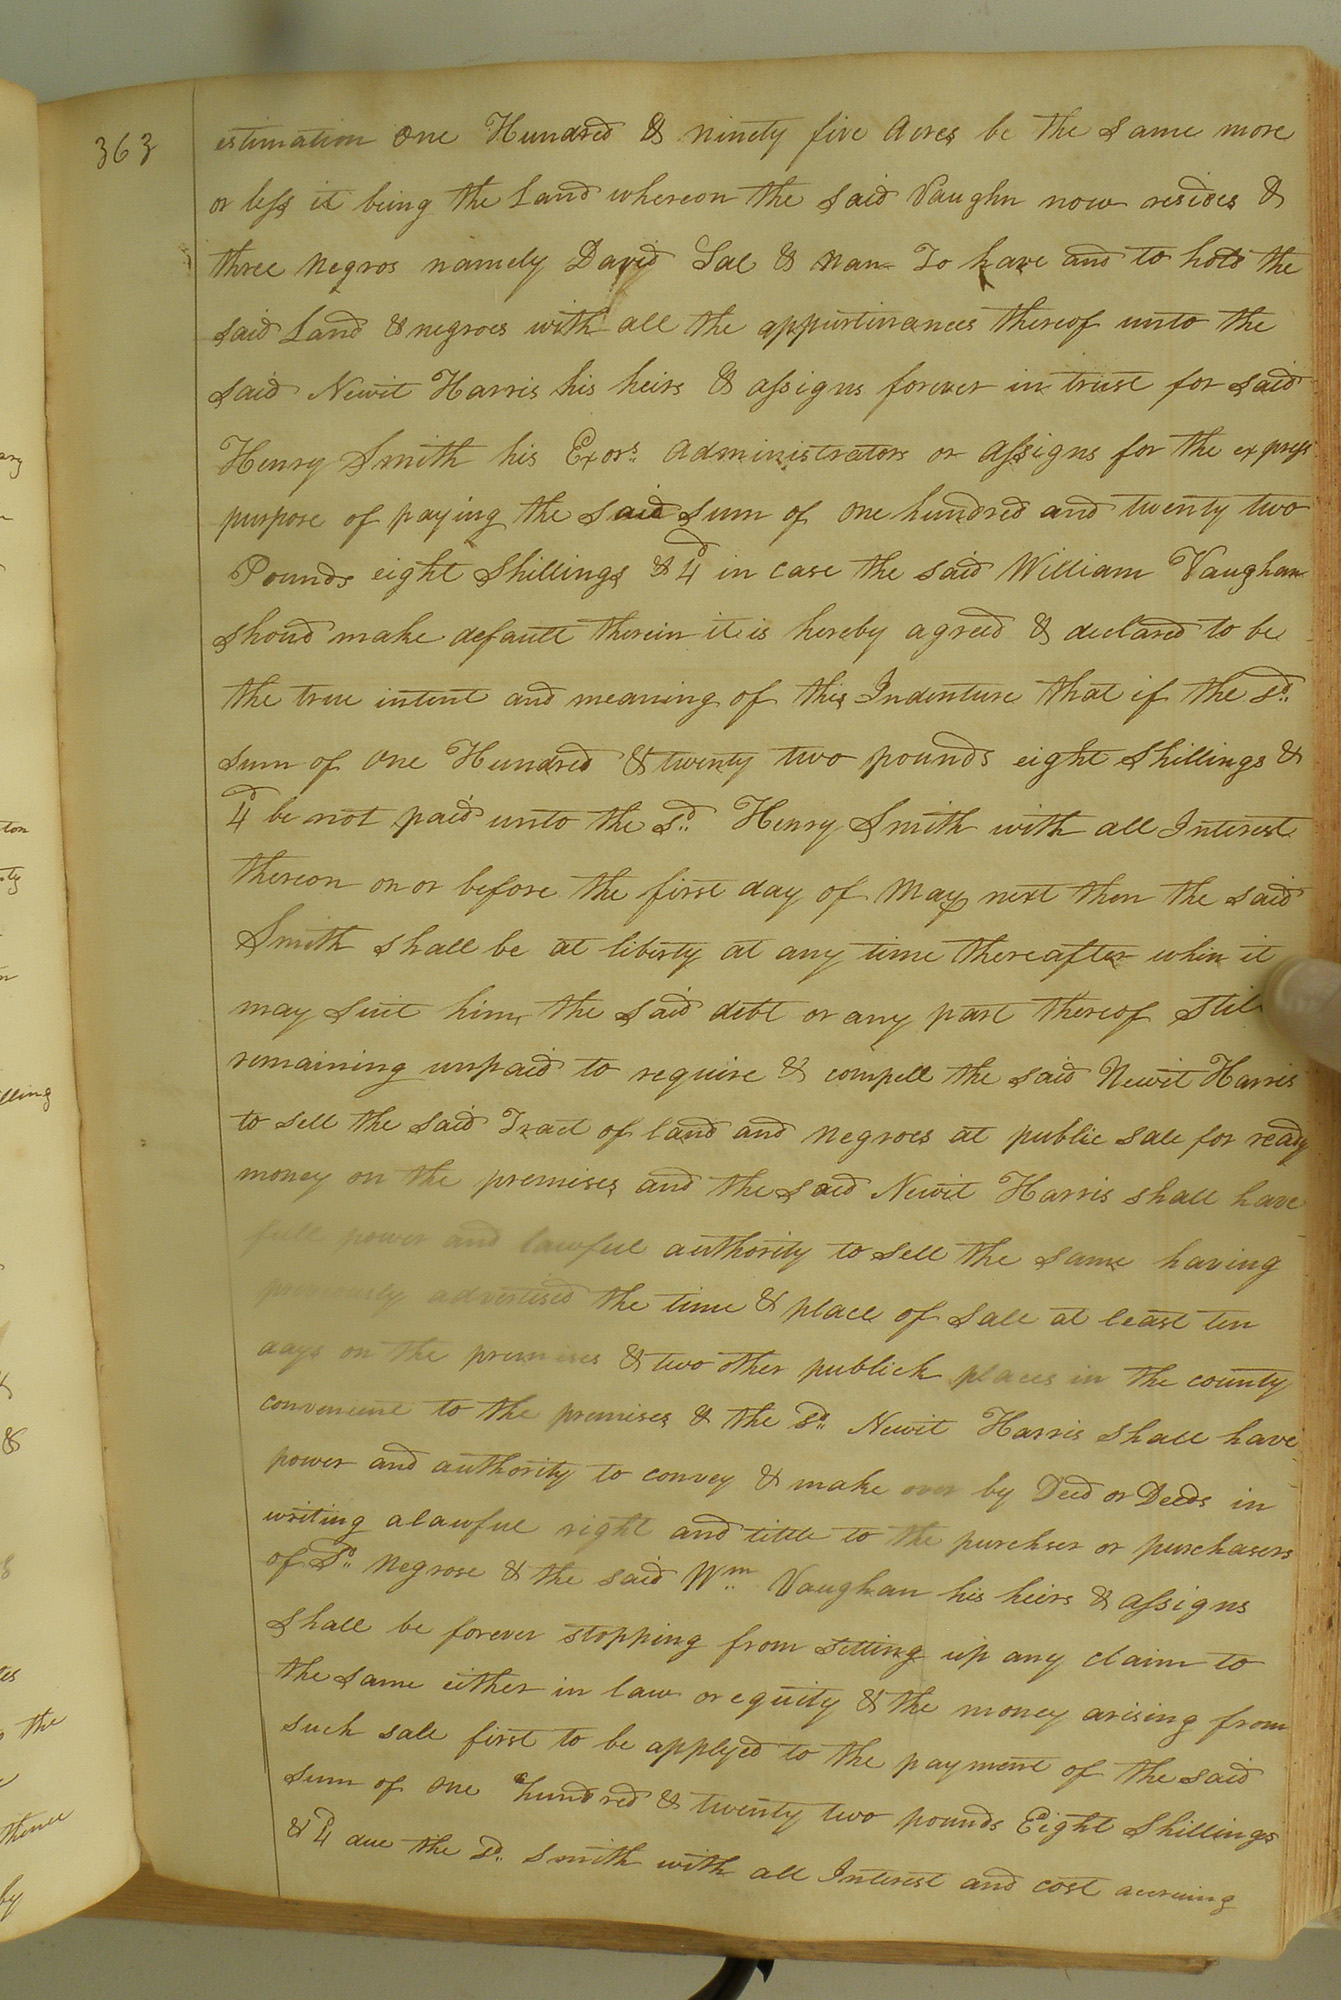 363
estimation One Hundred & ninety five Acres be the same more
or less it being the Land whereon the said Vaughn now resides &
three Negros namely David Sal & Nan To have and to hold the
said Land & negroes with all the appurtinances thereof unto the
said Newit Harris his heirs & assigns forever in trust for said
Henry Smith his Exors. Administrators or Assigns for the express
purpose of paying the said sum of one hundred and twenty two
Pounds eight Shillings & 4d in case the said William Vaughan
shoud make default therein it is hereby agreed & declared to be
the true intent and meaning of this Indenture that if the sd.
sum of One Hundred & twenty two pounds eight Shillings &
4d be not paid unto the sd. Henry Smith with all Interest
thereon on or before the first day of May next then the said
Smith shall be at liberty at any time thereafter when it
may suit him, the said debt or any part thereof stil
remaining unpaid to require & compell the said Newit Harris
to sell the said Tract of land and negroes at public sale for ready
money on the premises and the said Newit Harris shall have
full power and lawful authority to sell the same having
previously advertised the time & place of sale at least ten
days on the premises & two other publick places in the county
convenient to the premises & the sd. Newit Harris shall have
power and authority to convey & make over by Deed or Deeds in
writing a lawful right and tittle to the purchser or purchasers
of sd. Negrose & the said Wm. Vaughan his heirs & assigns
shall be forever stopping from setting up any claim to
the same either in law or equity & the money arising from
such sale first to be applyed to the payment of the said
sum of One hundred & twenty two pounds Eight Shillings
& 4d due the sd. Smith with all Interest and cost accruing